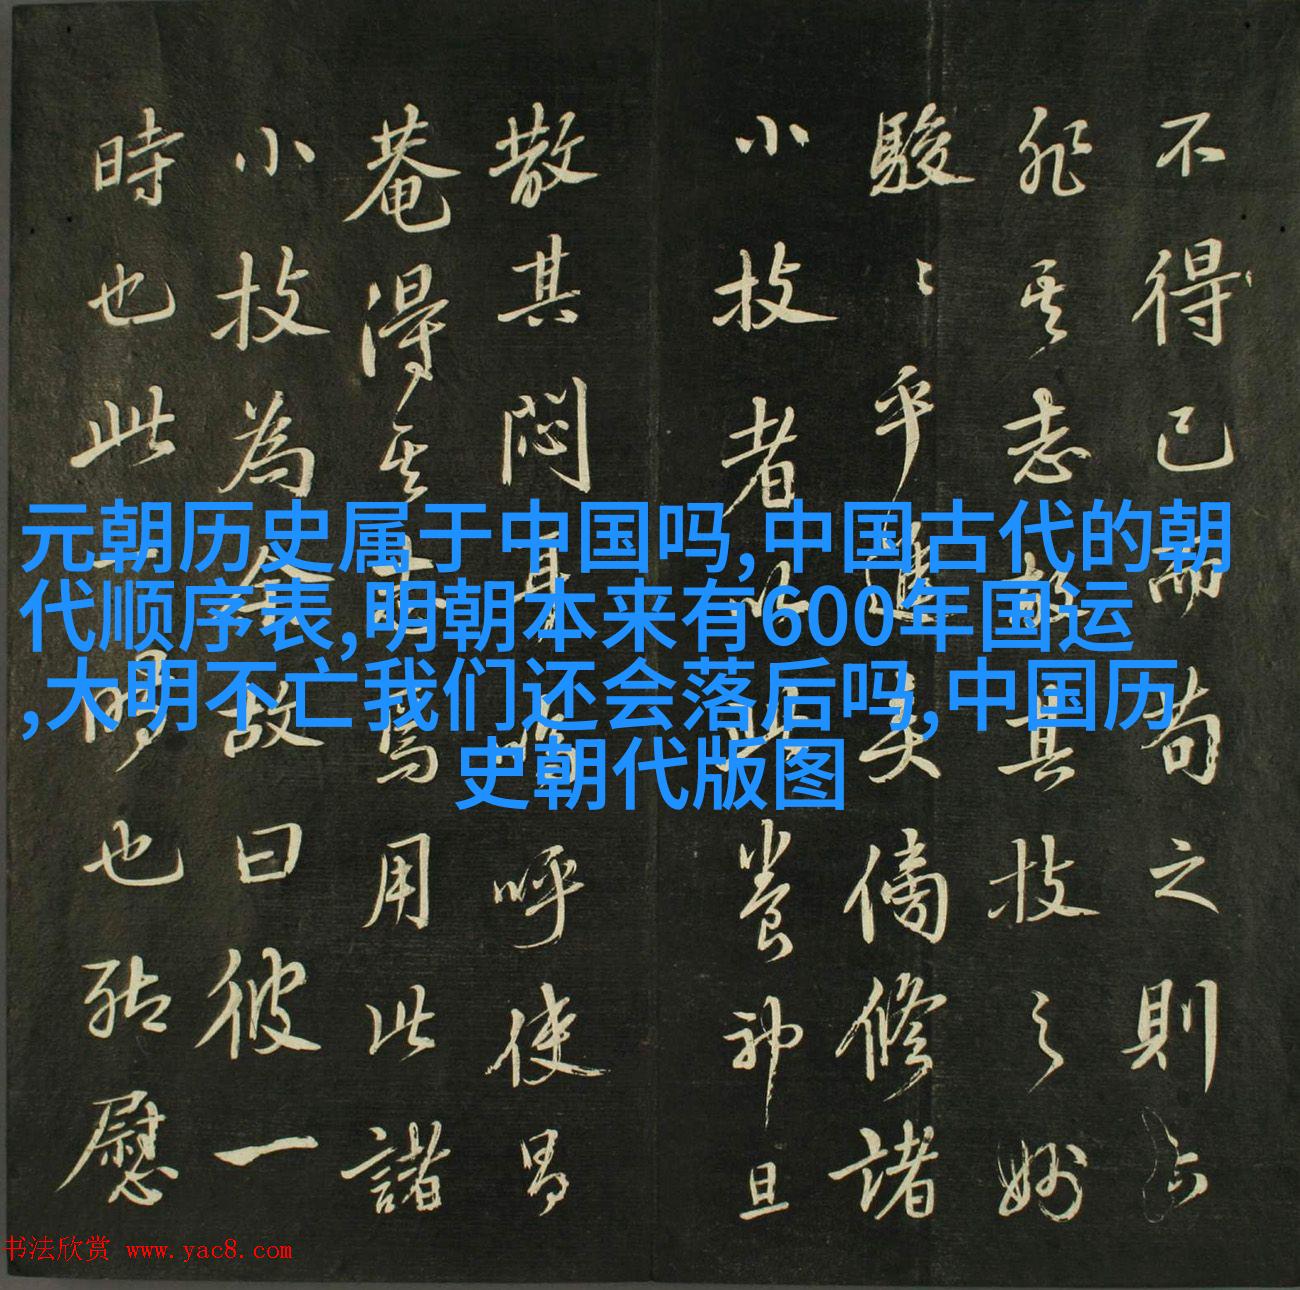 元朝历史属于中国吗,中国古代的朝
代顺序表,明朝本来有600年国运
,大明不亡我们还会落后吗,中国历
史朝代版图
不得已而苟之則
非其志故其技之妙
駸〻乎進矣倘修諸
小技者以此養神且
散其悶耳嗚呼使昌
菴得其焉用此諸
小技為故曰彼一
時也此一時也聊慰
书法欣赏 www.yac8.com